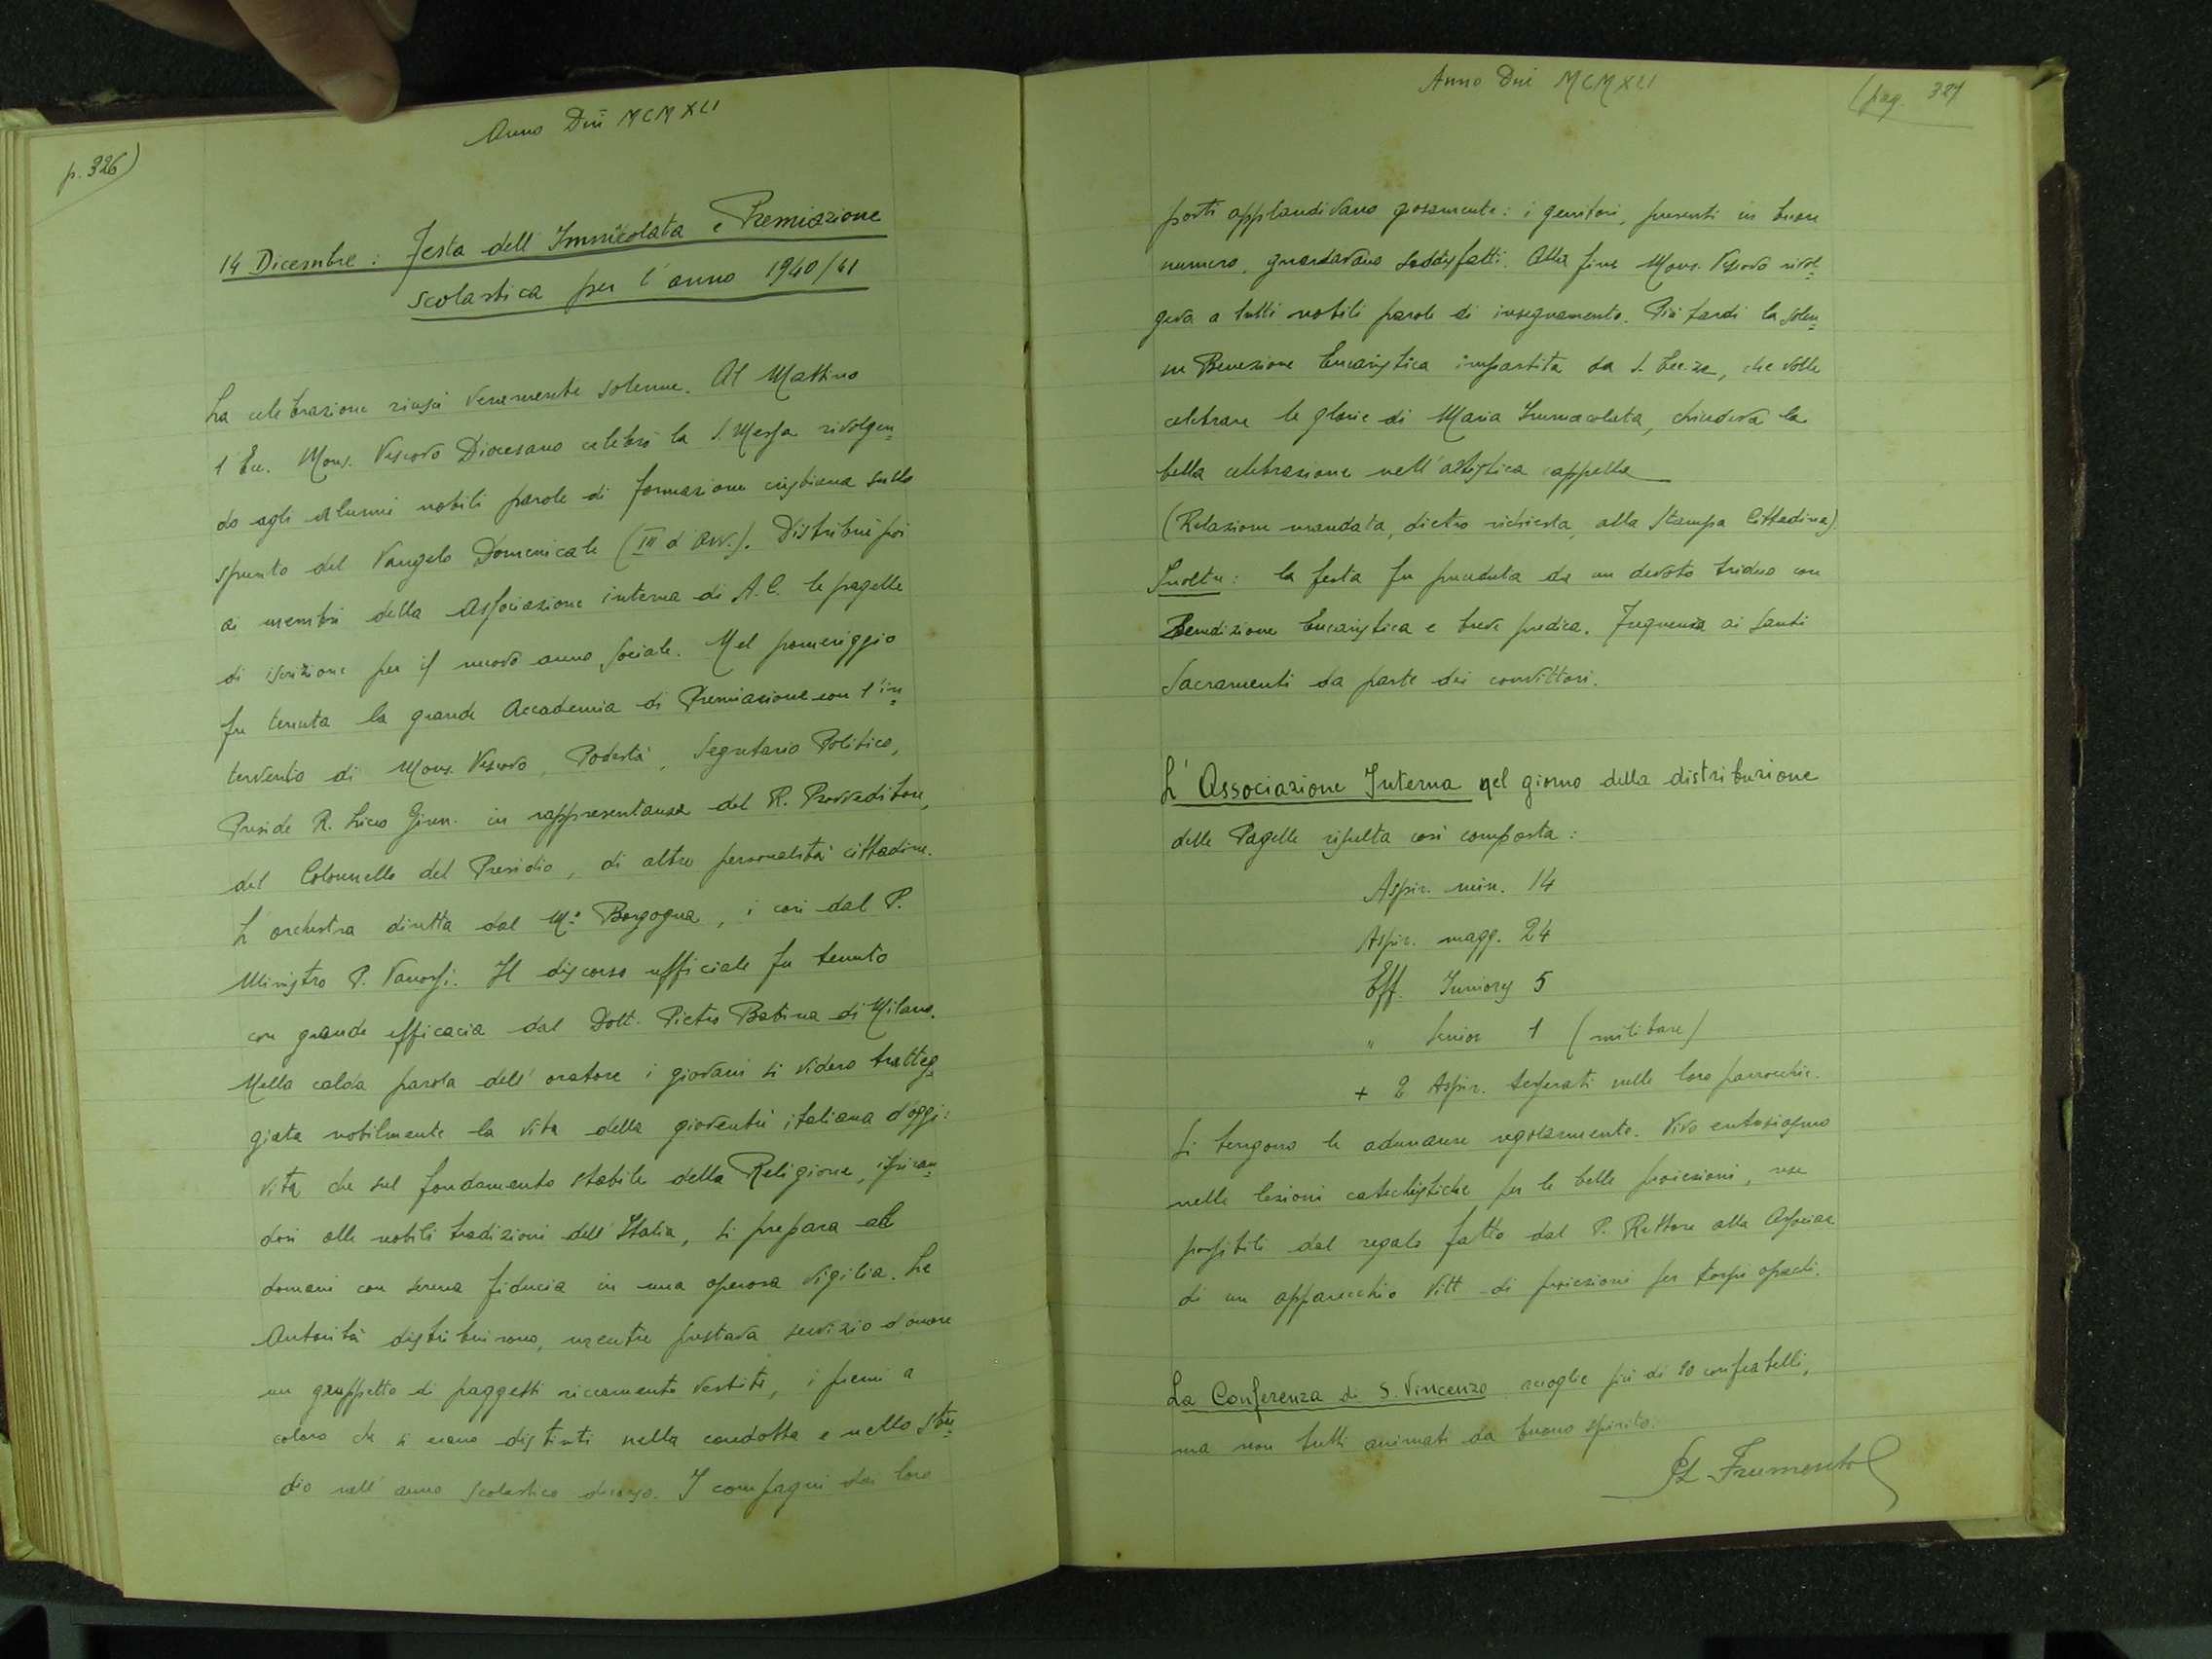 p. 326)
Anno Dni MCMXLI
14 Dicembre : Festa dell'Immacolata e Premiazione
scolastica per l'anno 1940/41
La celebrazione riuscì veramente solenne. Al Mattino
l'Ecc. Mons. Vescovo Diocesano celebrò la S. Messa rivolgen=
do agli alunni nobili parole di formazione cristiana sullo
spunto del Vangelo Domenicale (III d'Avv.). Distribuì poi
ai membri della Associazione interna di A.C. le pagelle
di iscrizione per il nuovo anno sociale. Nel pomeriggio
fu tenuta la grande Accademia di Premiazione con l'in=
tervento di Mons. Vescovo, Podestà, Segretario Politico,
Preside R. Liceo Ginn. in rappresentanza del R. Provveditore,
del Colonnello del Presidio, di altre personalità cittadine.
L'orchestra diretta dal M.o Borgogna, i cori dal P.
Ministro P. Vanossi. Il discorso ufficiale fu tenuto
con grande efficacia dal Dott. Pietro Babina di Milano.
Nella calda parola dell'oratore i giovani si videro tratteg=
giata nobilmente la vita della gioventù italiana d'oggi:
vita che sul fondamento stabile della Religione, ispiran=
dosi alle nobili tradizioni dell'Italia, si prepara al
domani con serena fiducia in una operosa vigilia. Le
Autorità distribuirono, mentre prestava servizio d'onore
un gruppetto di paggetti riccamente vestiti, i premi a
coloro che si erano distinti nella condotta e nello stu=
dio nell'anno scolastico decorso. I compagni dai loro
Anno Dni MCMXLI
(pag. 327
posti applaudivano giosamente: i genitori, presenti in buon
numero, guardavano soddisfatti. Alla fine Mons. Vescovo rivol=
geva a tutti nobili parole di insegnamento. Più tardi la solen=
ne Benezione Eucaristica impartita da S. Ecc.za, che volle
celebrare le glorie di Maria Immacolata, chiudeva la
bella celebrazione nell'artistica cappella
(Relazione mandata, dietro richiesta, alla Stampa Cittadina).
Inoltre: la festa fu preceduta da un devoto triduo con
Benedizione Eucaristica e breve predica. Frequenza ai Santi
Sacramenti da parte dei convittori.
L'Associazione Interna nel giorno della distribuzione
delle Pagelle risulta così composta:
Aspir. min. 14
Aspir. magg. 24
Eff. Juniores 5
" Senior 1 (militare)
+ 2 Aspir. tesserati nelle loro parrocchie.
Si tengono le adunanze regolarmente. Vivo entusiasmo
nelle lezioni catechistiche per le belle proiezioni, rese
possibili dal regalo fatto dal P. Rettore alla Associaz.
di un apparecchio Vitt di proiezioni per corpi opachi.
La Conferenza di S. Vincenzo raccoglie più di 20 confratelli,
ma non tutti animati da buono spirito.
PL Frumento